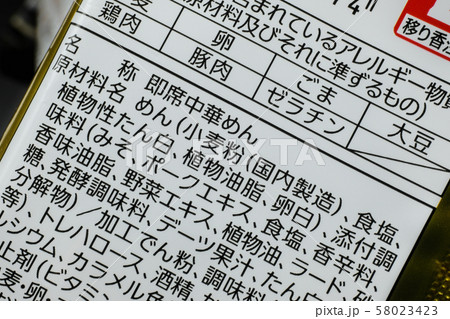 含まれているアレルギー物質
原材料及びそれに準ずるもの)
移り香注
麦 卵 ごま 大豆
鶏肉 豚肉 ゼラチン
名 称 即席中華めん
原材料名 めん(小麦粉(国内製造)、食塩、
植物性たん白、植物油脂、卵白)、添付調
味料(みそ、ポークエキス、食塩、香辛料、
香味油脂、野菜エキス、植物油、ラード、砂
糖、発酵調味料、デーツ果汁、たん白
分解物)/加工でん粉、調味料
等)、トレハロース、酒精、か
シウム、カラメル色
止剤(ビタミン
麦・卵・
58023423